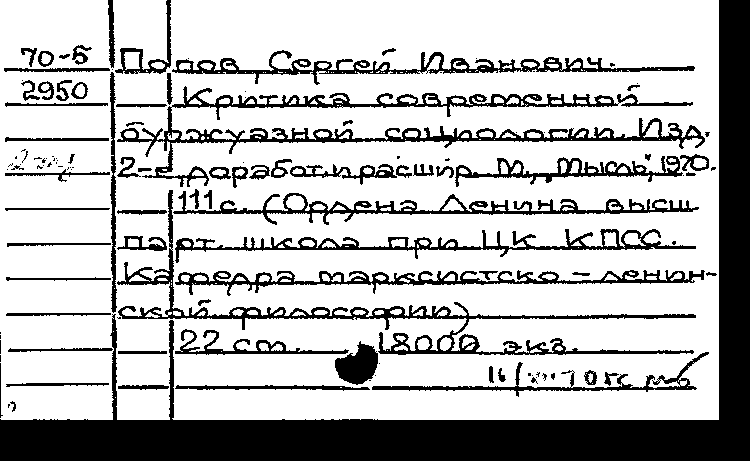 70-5 Попов, Сергей Иванович.
2950 Критика современной
буржуазной социологии. Изд.
2-е, доработ. и расшир. М., „Мысль", 1970.
111 с. (Ордена Ленина высш.
парт. школа при ЦК КПСС.
Кафедра марксистско-ленин-
ской философии)
22 см. 18000 экз.
16/